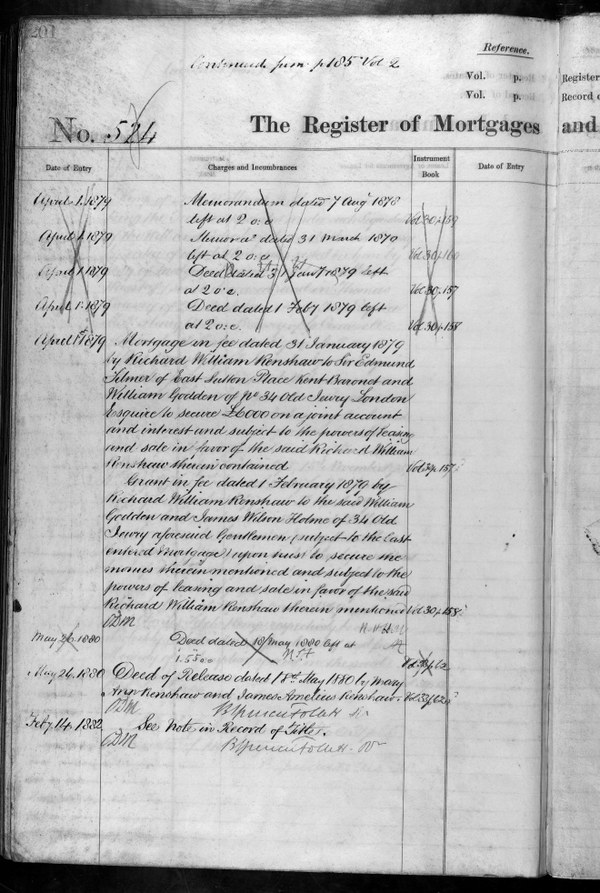 201
Continued from p185 Vol 2
Reference.
Vol. p.
Vol. p.
Register
Record o
No. 524
The Register of Mortgages and
Date of Entry
Charges and Incumbrances
Instrument
Book
Date of Entry
April 1. 1879 Memorandum dated 7 Augt 1878
left at 2 o:c Vol 30p159
April 1. 1879 Memora: dated 31 March 1870
left at 2 o:c Vol 30p160
April 1. 1879 Deed dated 31 Jany 1879 left
at 2 o:c. Vol 30p157
April 1. 1879 Deed dated 1 Feby 1879 left
at 2 o:c. Vol 30p158
April 1st 1879 Mortgage in fee dated 31 January 1879
by Richard William Renshaw to Sir Edmund
Filmer of East Sutton Place Kent Baronet and
William Godden of No 34 Old Jewry London
Esquire to secure £6000 on a joint account
and interest and subject to the powers of leasing
and sale in favor of the said Richard William
Renshaw therein contained Vol 30p157
Grant in fee dated 1 February 1879 by
Richard William Renshaw to the said William
Godden and James Wilson Holme of 34 Old
Jewry aforesaid Gentlemen (subject to the last
entered Mortgage) upon trust to secure the
monies therein mentioned and subject to the
powers of leasing and sale in favor of the said
Richard William Renshaw therein mentioned Vol 30p158
ODM
May 26. 1880 Deed dated 18 May 1880 left at
Vol 33p62
May 26. 1880 Deed of Release dated 18th May 1880 by Mary
Ann Renshaw and James Amelius Renshaw. Vol 33p62
ODM BSpencerFollett
Feby 14. 1882 See Note in Record of Titles.
ODM BSpencerFollett